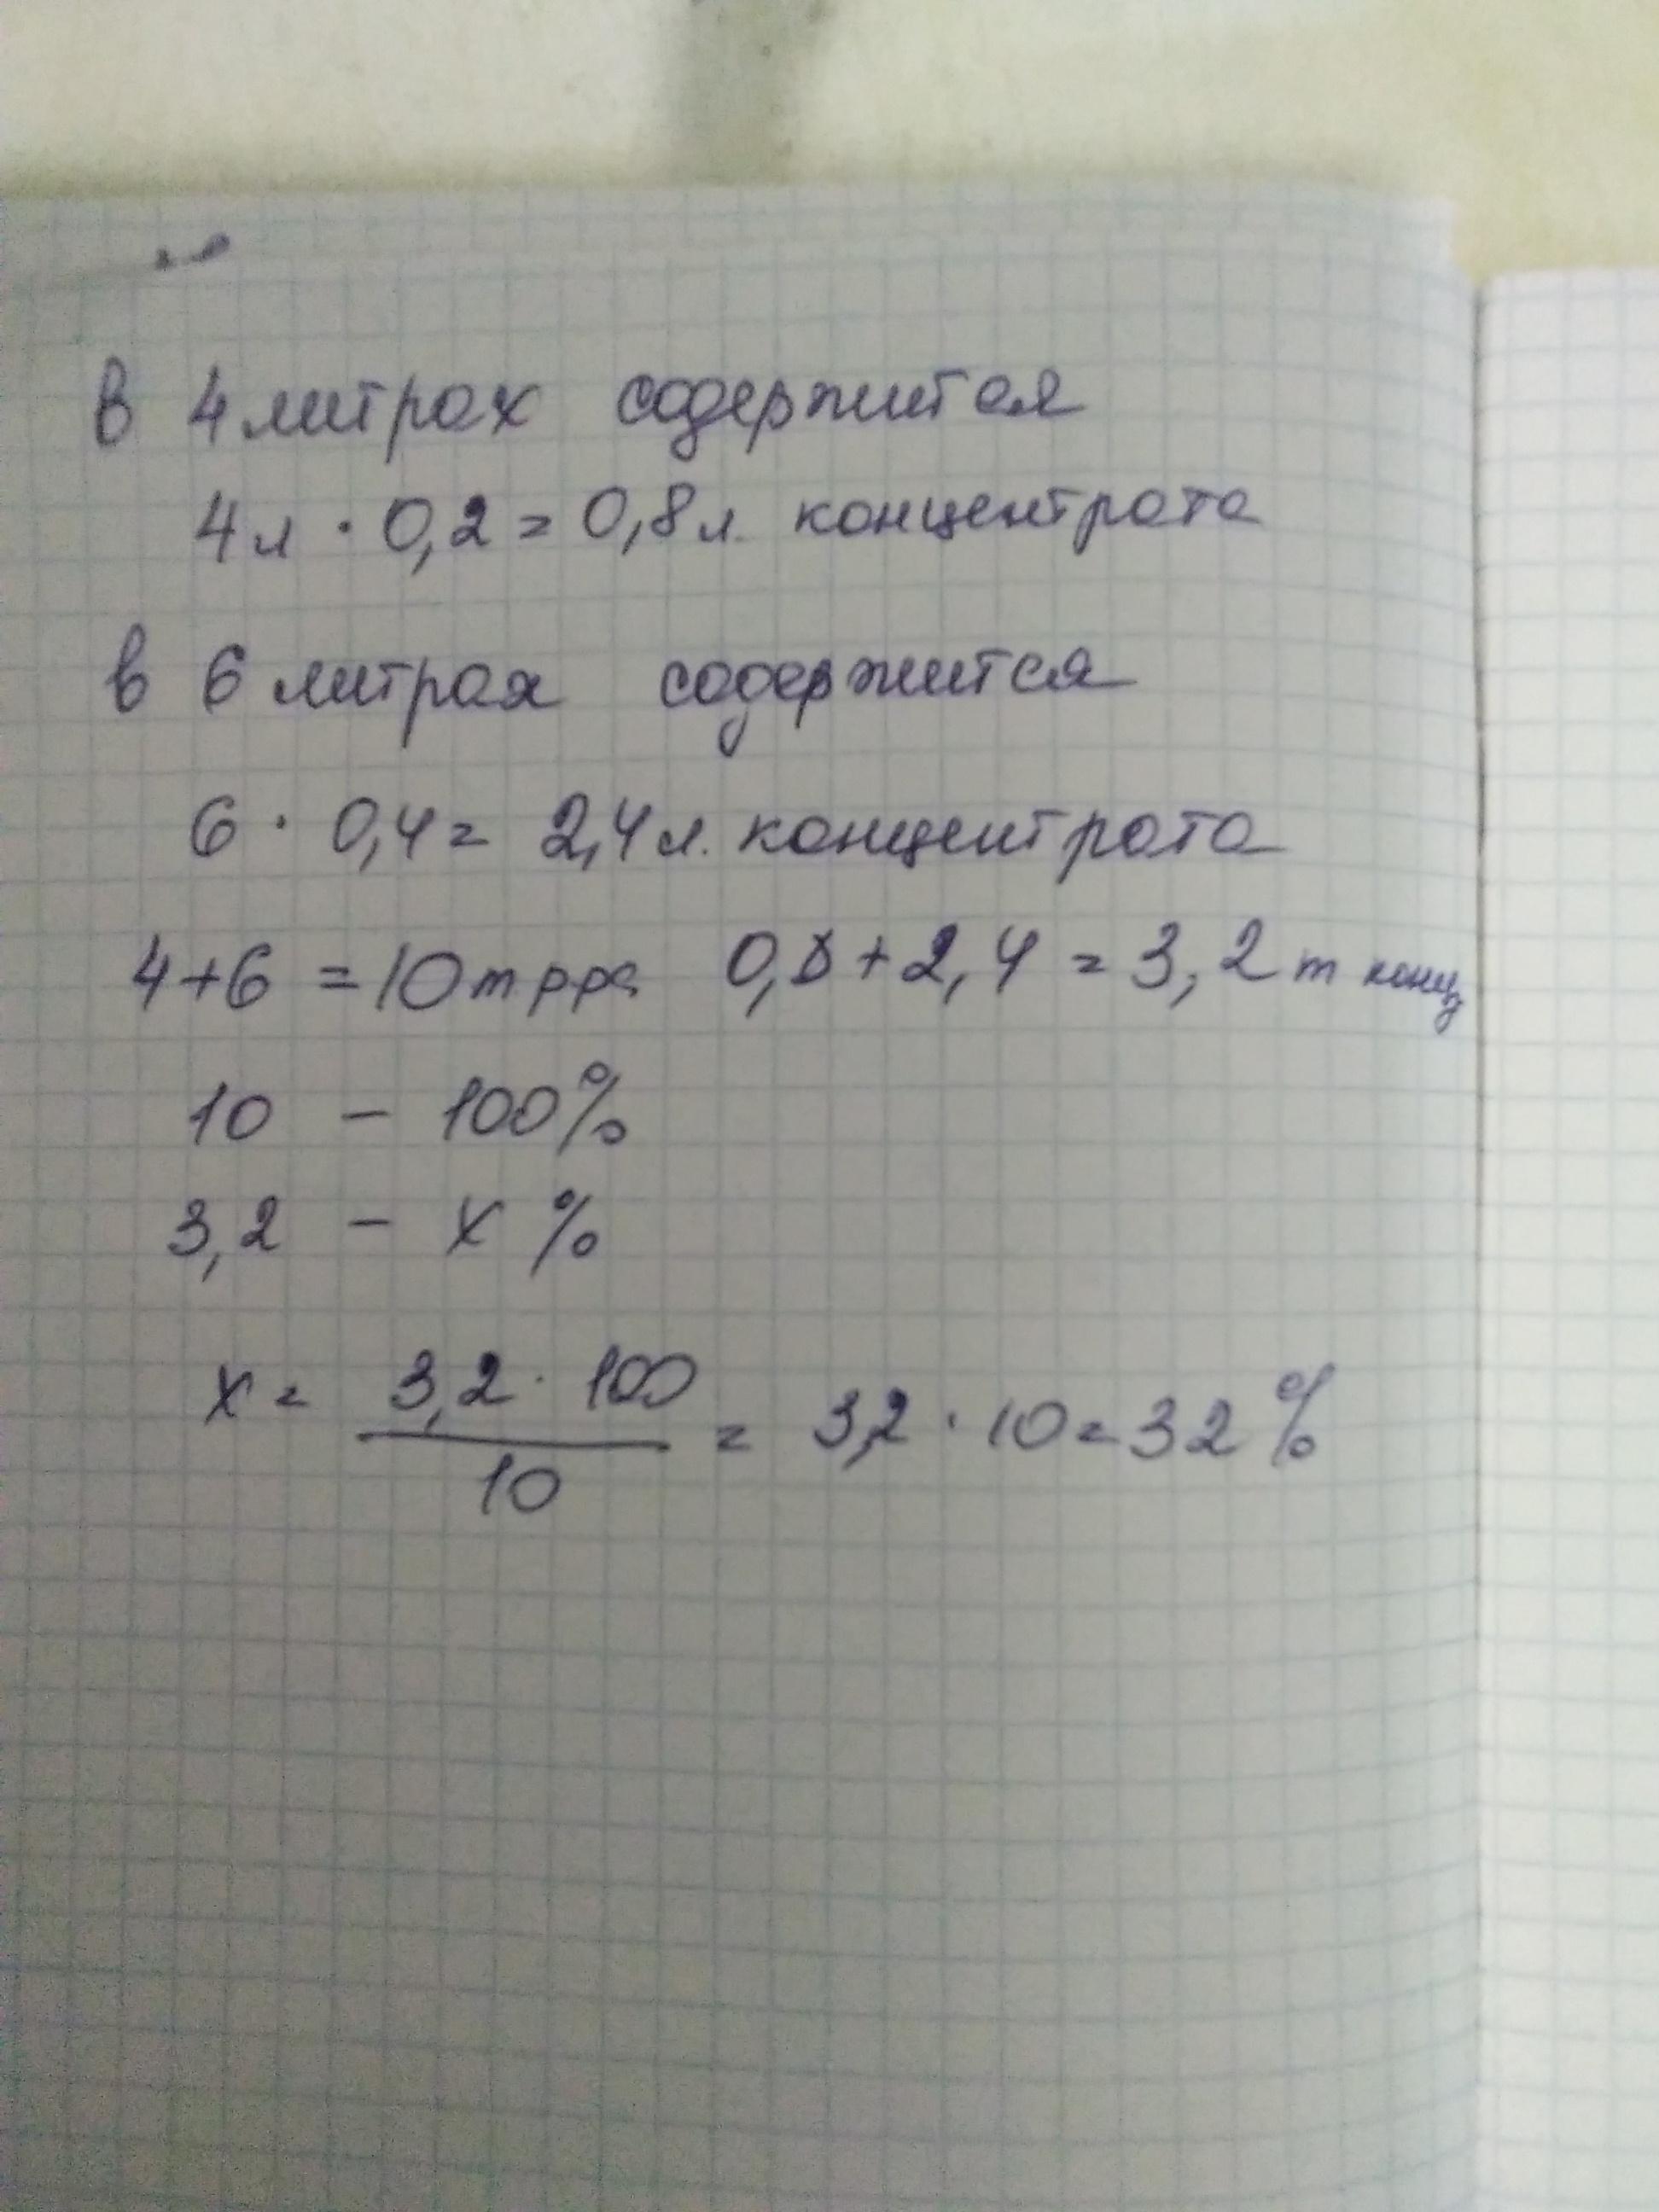 в 4 литрах содержится
4 л · 0,2 = 0,8 л. концентрата
в 6 литрах содержится
6 · 0,4 = 2,4 л. концентрата
4+6 = 10 т рра 0,8 + 2,4 = 3,2 т конц
10 – 100%
3,2 – x %
x = 3,2 · 100 / 10 = 3,2 · 10 = 32 %